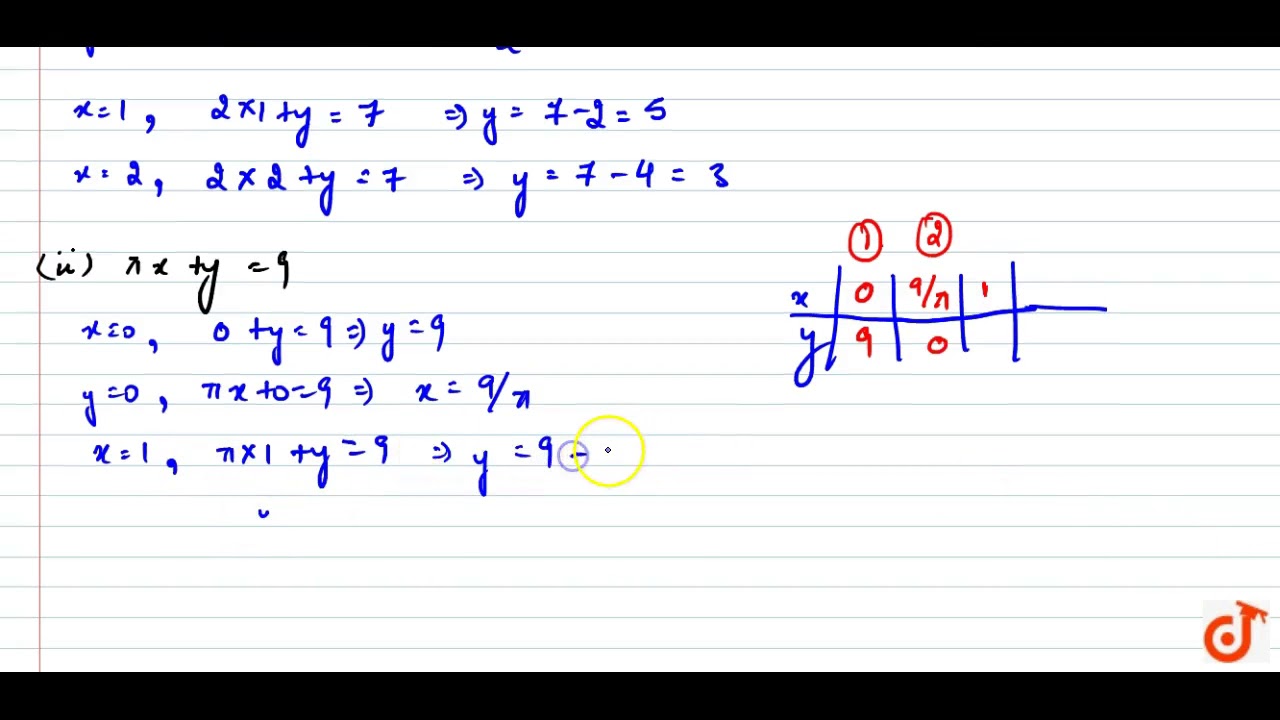 x=1, 2×1+y = 7 ⇒ y = 7-2 = 5
x= 2, 2×2+y = 7 ⇒ y = 7-4 = 3
(ii) πx+y = 9
x=0, 0+y=9 ⇒ y=9
y=0, πx+0=9 ⇒ x = 9/π
x=1, π×1+y=9 ⇒ y = 9 -
① ②
x 0 9/π 1
y 9 0